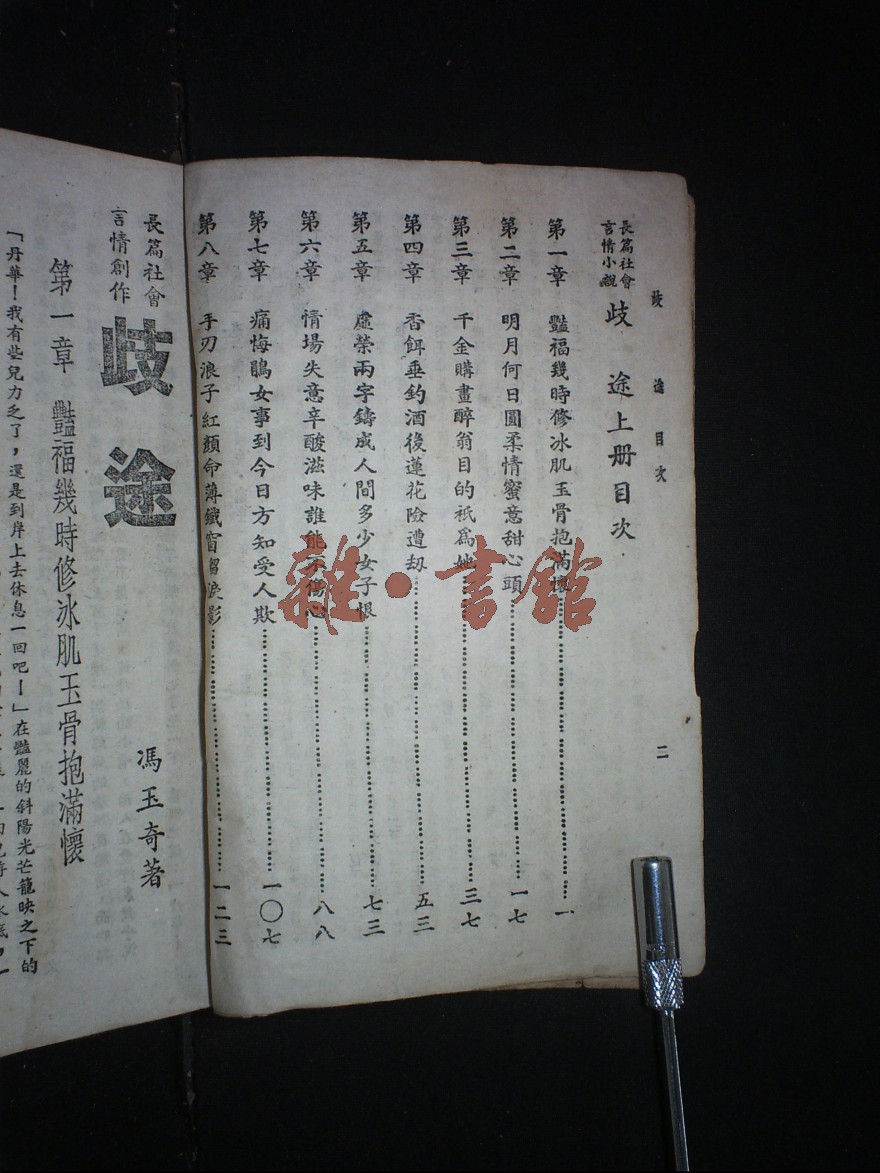 歧途目次
二
長篇社會
言情小說
歧途上册目次
第一章 豔福幾時修冰肌玉骨抱滿懷 一
第二章 明月何日圓柔情蜜意甜心頭 一七
第三章 千金購畫醉翁目的祇爲她 三七
第四章 香餌垂釣酒後蓮花險遭刧 五三
第五章 虛榮兩字鑄成人間多少女子恨 七三
第六章 情場失意辛酸滋味誰能不傷心 八八
第七章 痛悔鵑女事到今日方知受人欺 一〇七
第八章 手刃浪子紅顏命薄鐵窗留淚影 一二三
雜·書館
長篇社會
言情創作
歧途
馮玉奇著
第一章 豔福幾時修冰肌玉骨抱滿懷
「丹華！我有些兒力乏了，還是到岸上去休息一回吧！」在豔麗的斜陽光芒籠映之下的